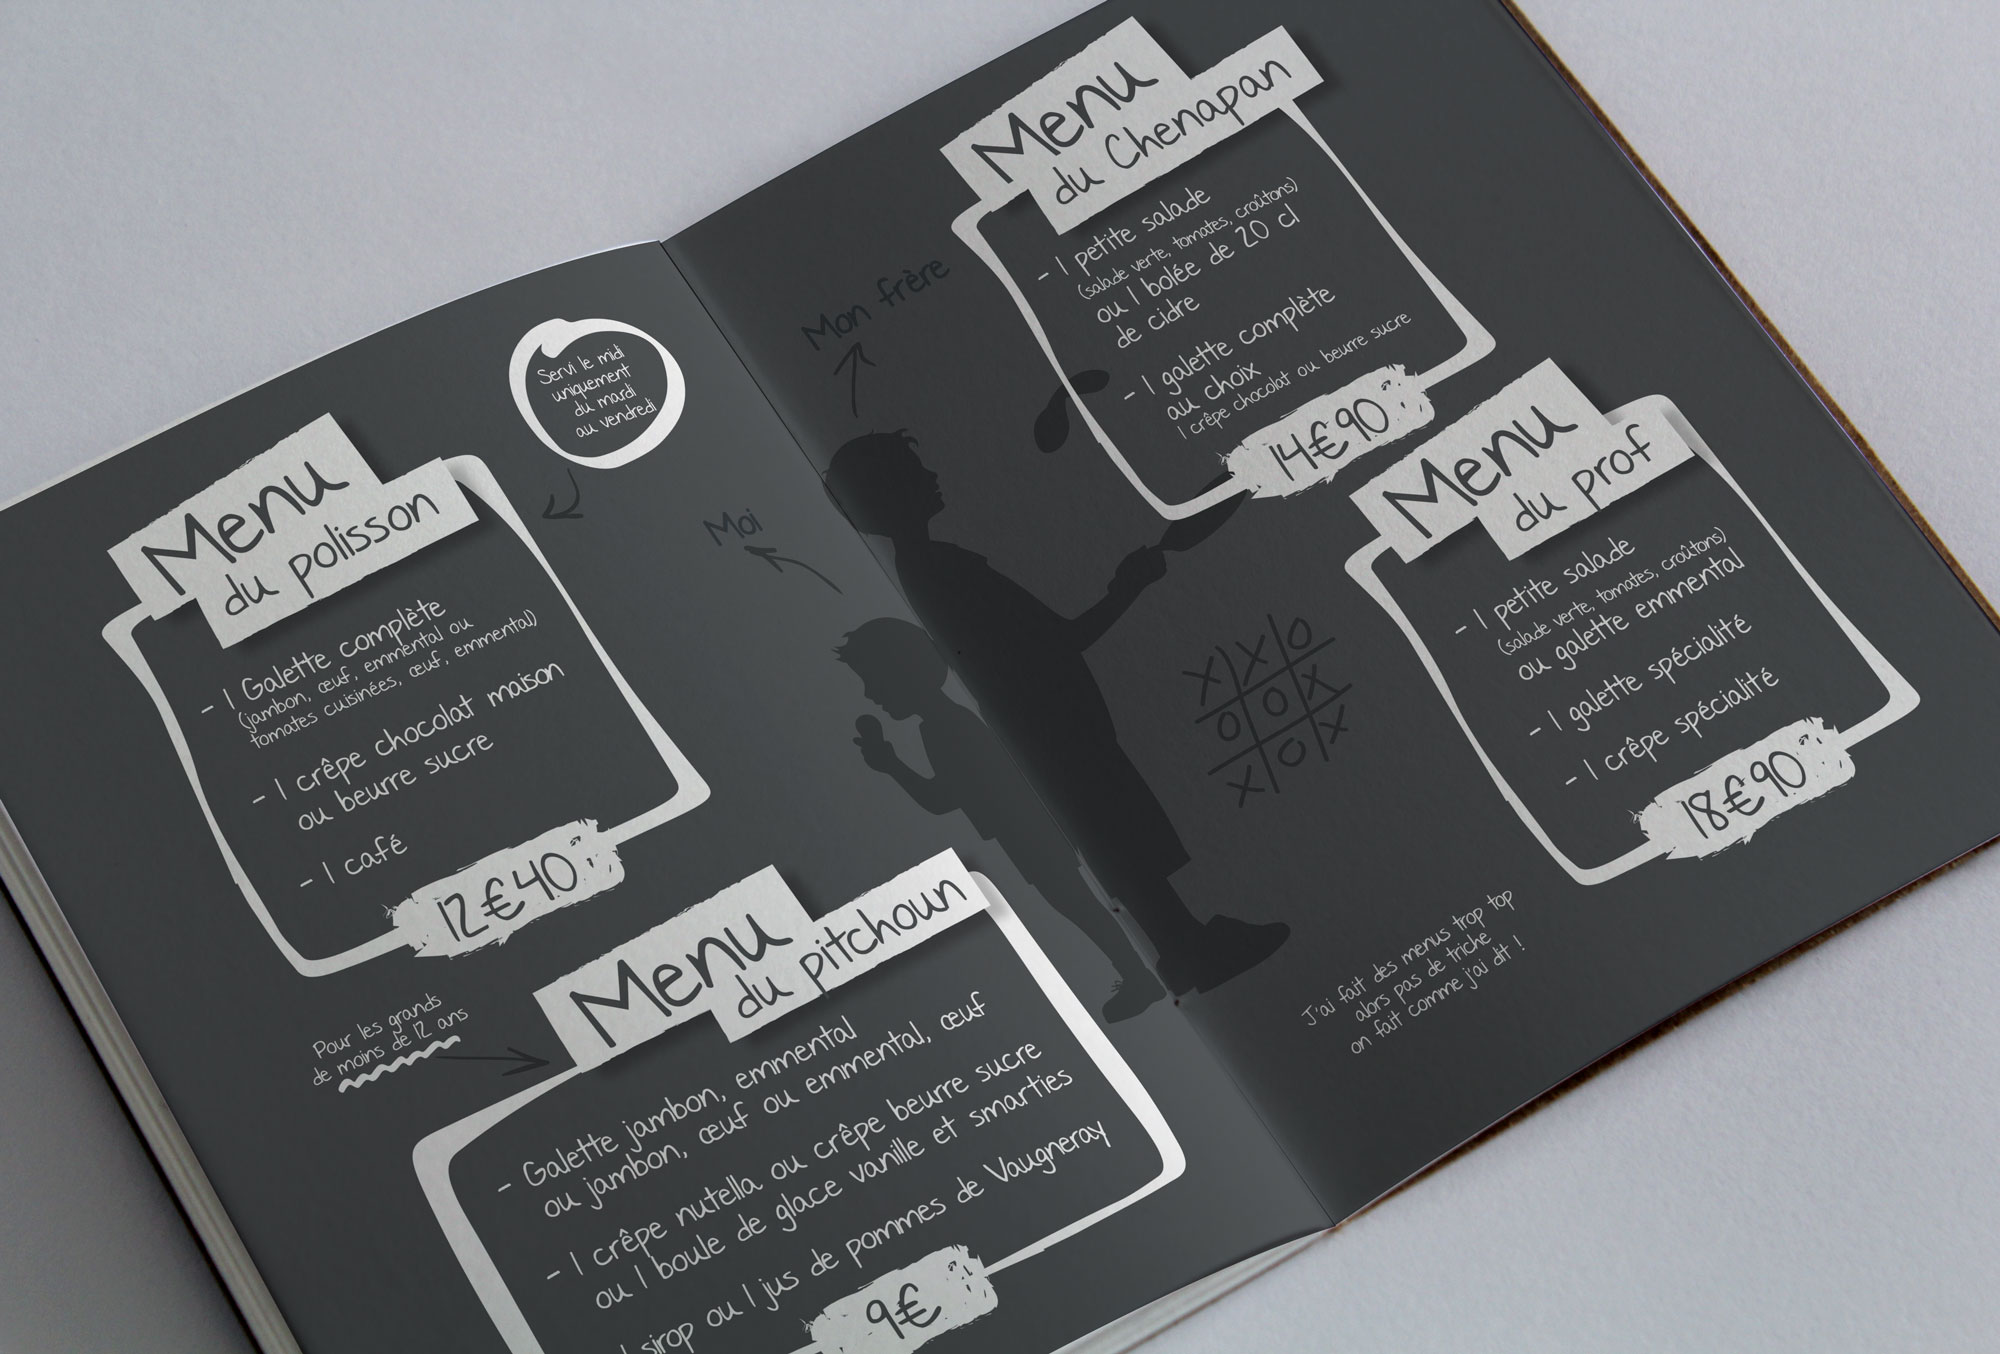 Servi le midi
uniquement
du mardi
au vendredi
Menu
du polisson
- 1 Galette complète
(jambon, œuf, emmental ou
tomates cuisinées, œuf, emmental)
- 1 crêpe chocolat maison
ou beurre sucre
- 1 café
12€40
Moi
Pour les grands
de moins de 12 ans
Menu
du pitchoun
- Galette jambon, emmental
ou jambon, œuf ou emmental, œuf
- 1 crêpe nutella ou crêpe beurre sucre
ou 1 boule de glace vanille et smarties
1 sirop ou 1 jus de pommes de Vaugneray
9€
Mon frère
Menu
du Chenapan
- 1 petite salade
(salade verte, tomates, croûtons)
ou 1 bolée de 20 cl
de cidre
- 1 galette complète
au choix
1 crêpe chocolat ou beurre sucre
14€90
Menu
du prof
- 1 petite salade
(salade verte, tomates, croûtons)
ou galette emmental
- 1 galette spécialité
- 1 crêpe spécialité
18€90
X X O
O O X
X O X
J'ai fait des menus trop top
alors pas de triche
on fait comme j'ai dit !